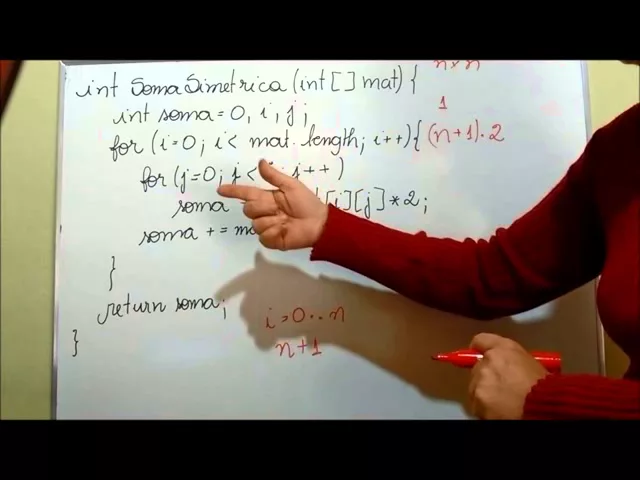 n x n
int SomaSimetrica (int[] mat) {
1
int soma = 0, i, j;
for (i=0; i< mat.length; i++) { (n+1).2
for (j=0; j < j++)
soma [j] * 2;
soma + =
}
return soma;
i=0..n
}
n+1